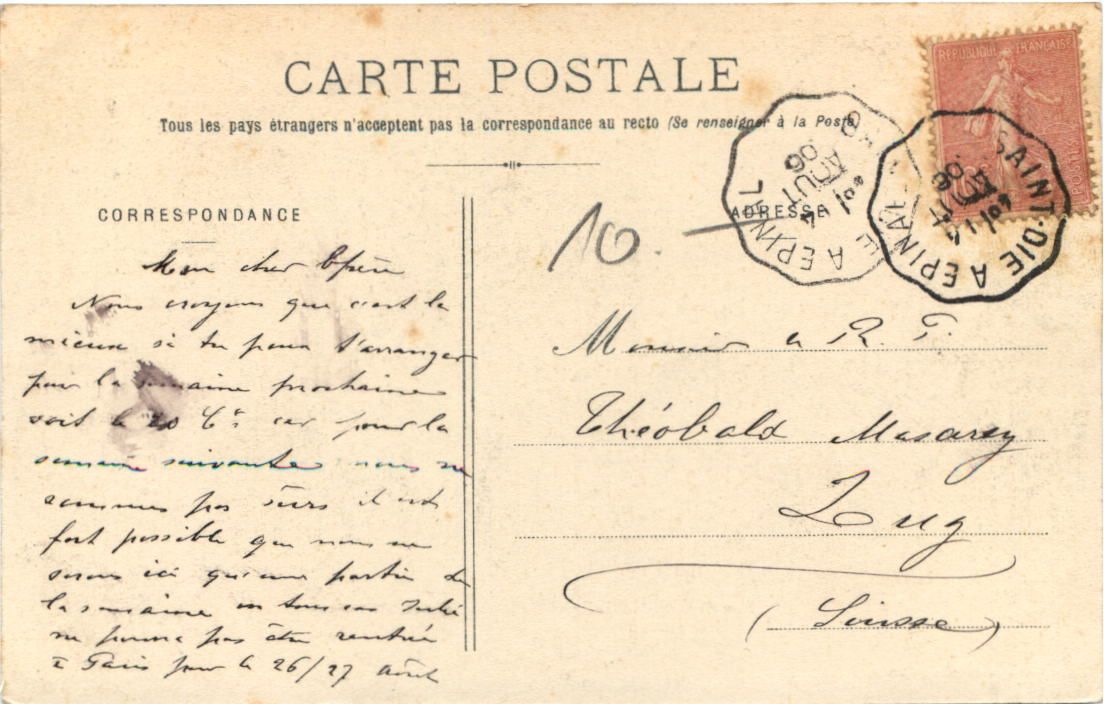 CARTE POSTALE
Tous les pays étrangers n'acceptent pas la correspondance au recto (Se renseigner à la Poste)
CORRESPONDANCE
ADRESSE
10
RÉPUBLIQUE FRANÇAISE
SAINT-DIE A EPINAL
14 AOUT 06
EPINAL
Mon cher
Nous croyons que c'est le
mieux si tu peux t'arranger
pour la semaine prochaine
soit le 20 Ct car pour la
semaine suivante nous ne
sommes pas sûrs il est
fort possible que nous ne
serons ici qu'une partie de
la semaine en tous cas
ne pourra pas être rentrée
à Paris pour le 26/27 Août
Monsieur R. F.
Théobald Masarey
Zug
(Suisse)